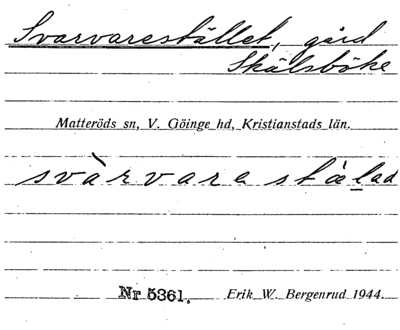 Svarvarestället, gård
Skälsböke
Matteröds sn, V. Göinge hd, Kristianstads län.
svàrvare stälad
Nr 5361. Erik W. Bergenrud 1944.